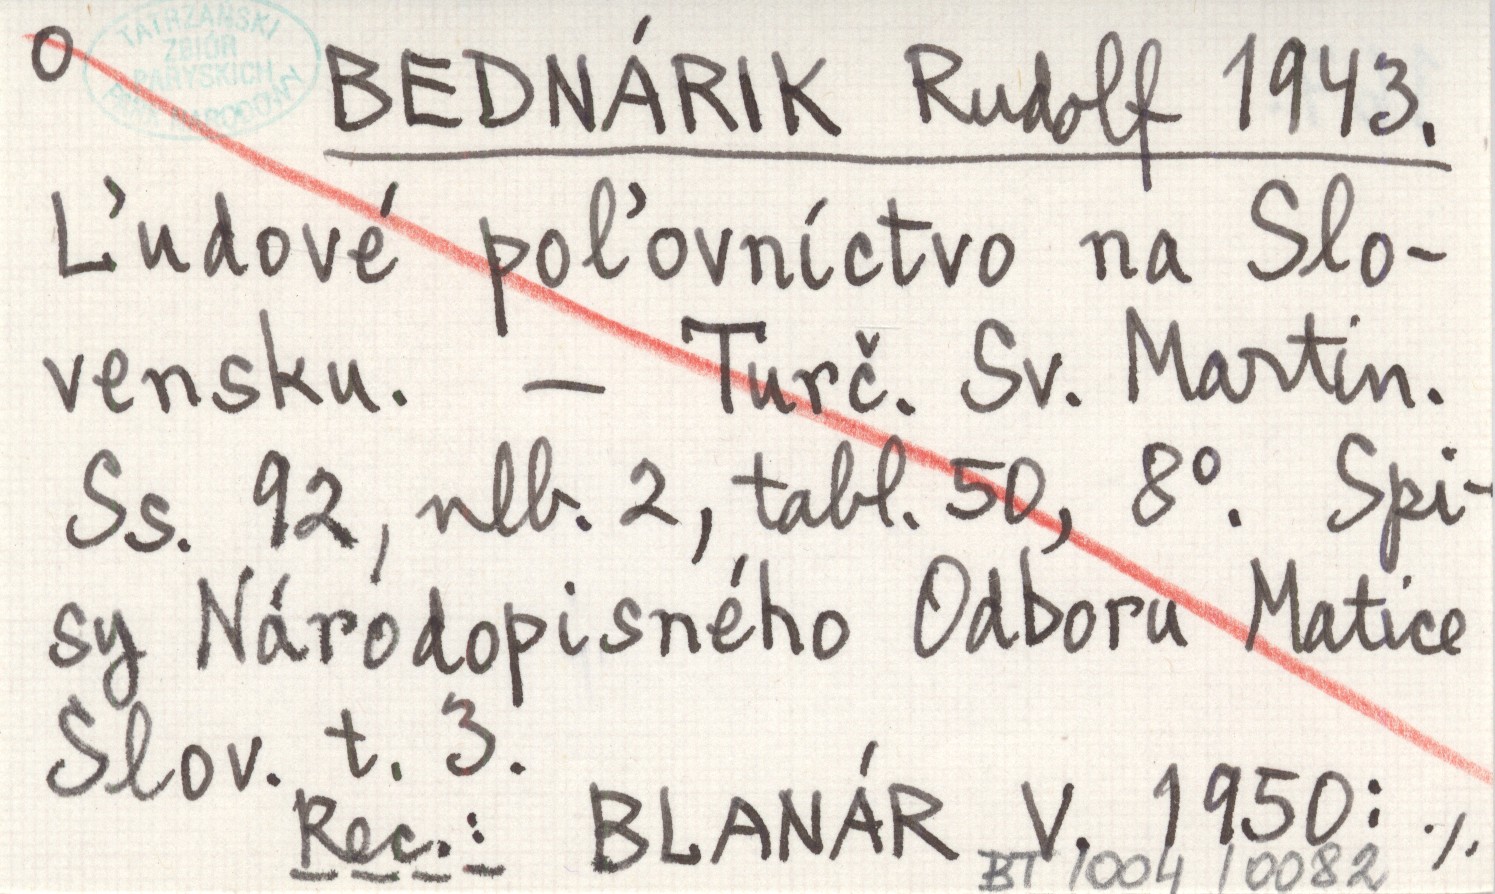 O
TATRZAŃSKI
ZBIÓR
PARYSKICH
PARK NARODOWY
BEDNÁRIK Rudolf 1943.
Ľudové poľovníctvo na Slo-
vensku. — Turč. Sv. Martin.
Ss. 92, nlb. 2, tabl. 50, 8°. Spi-
sy Národopisného Odboru Matice
Slov. t. 3.
Rec.: BLANÁR V. 1950: ./.
BT /004 /0082